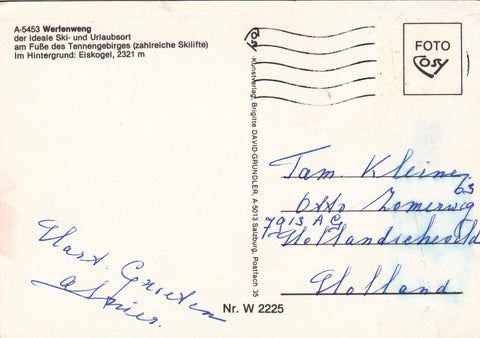 A-5453 Werfenweng
der ideale Ski- und Urlaubsort
am Fuße des Tennengebirges (zahlreiche Skilifte)
Im Hintergrund: Eiskogel, 2321 m
Hart. Groeten
Kunstverlag, Brigitte DAVID-GRÜNDLER, A-5013 Salzburg, Postfach 35
Nr. W 2225
FOTO
Cosy
Fam. Kleine
Otto Zomerweg 63
7913 AG
Hollandscheveld
Holland